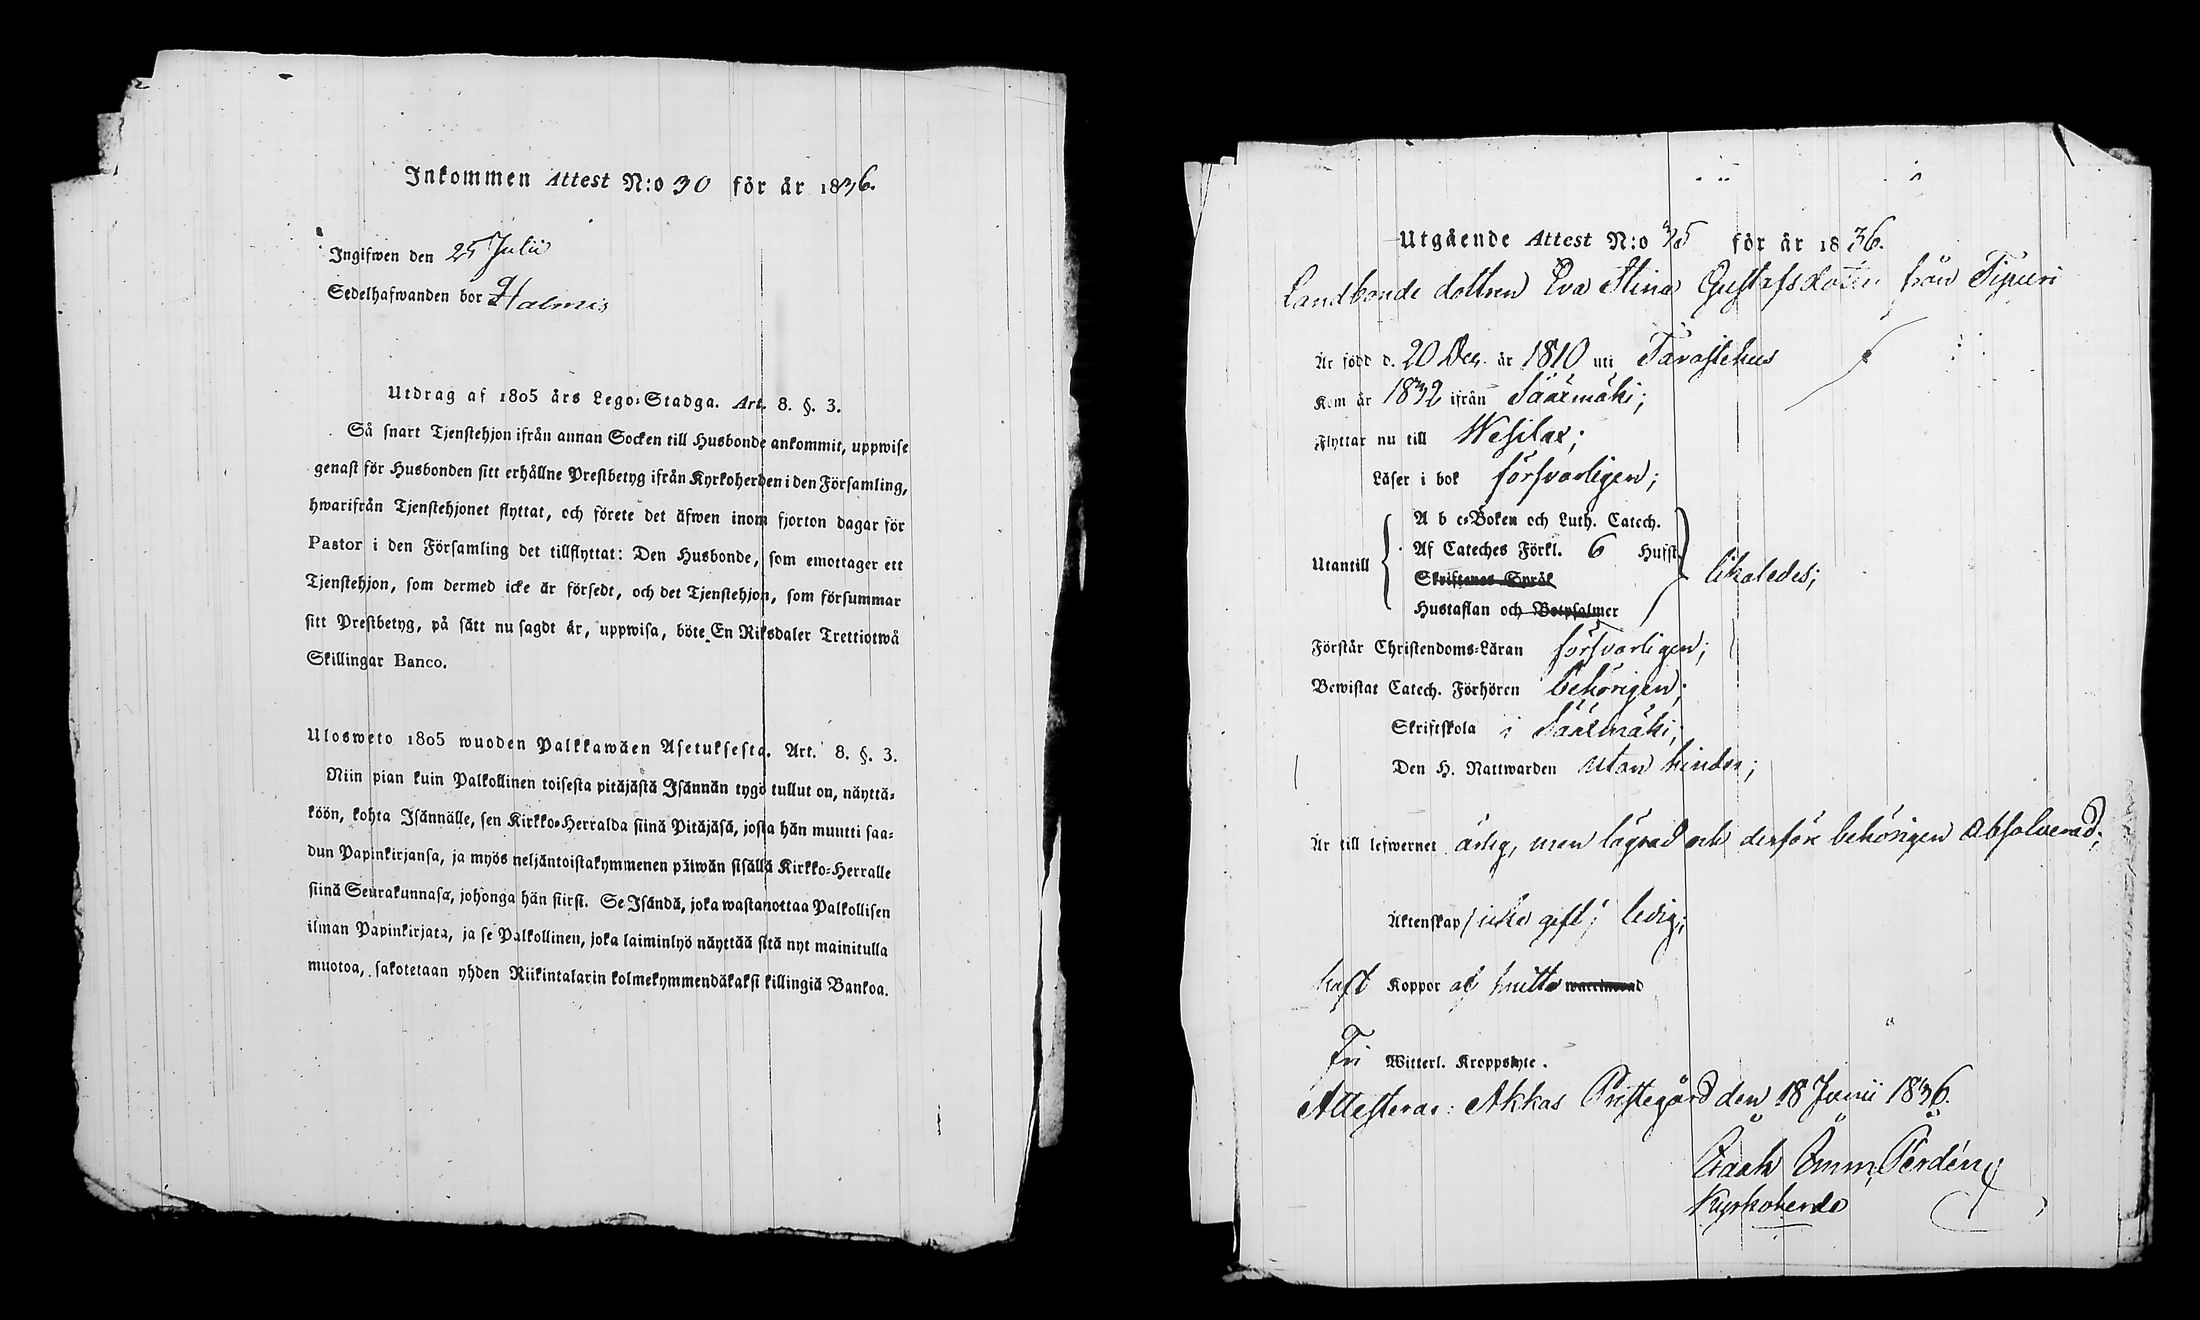 Inkommen Attest N:o 30 för år 1836.
Ingifwen den 25 Julii
Sedelhafwanden bor Halmis
Utdrag af 1805 års Lego-Stadga. Art. 8. §. 3.
Så snart Tjenstehjon ifrån annan Socken till Husbonde ankommit, uppwise
genast för Husbonden sitt erhållne Prestbetyg ifrån Kyrkoherden i den Församling,
hwarifrån Tjenstehjonet flyttat, och förete det äfwen inom fjorton dagar för
Pastor i den Församling det tillflyttat: Den Husbonde, som emottager ett
Tjenstehjon, som dermed icke är försedt, och det Tjenstehjon, som försummar
sitt Prestbetyg, på sätt nu sagdt är, uppwisa, böte En Riksdaler Trettiotwå
Skillingar Banco.
Ulosweto 1805 wuoden Palkkawäen Asetuksesta. Art. 8. §. 3.
Niin pian kuin Palkollinen toisesta pitäjästä Isännän tygö tullut on, näyttä-
köön, kohta Isännälle, sen Kirkko-Herralda siinä Pitäjäsä, josta hän muutti saa-
dun Papinkirjansa, ja myös neljäntoistakymmenen päiwän sisällä Kirkko-Herralle
siinä Seurakunnasa, johonga hän siirsi. Se Isändä, joka wastanottaa Palkollisen
ilman Papinkirjata, ja se Palkollinen, joka laiminlyö näyttää sitä nyt mainitulla
muotoa, sakotetaan yhden Riikintalarin kolmekymmendäkaksi killingiä Bankoa.
Utgående Attest N:o 35 för år 1836.
Landbonde dottren Eva Stina Gustafsdotter från Tipuri
Är född d. 20 Dec. år 1810 uti Tavastehus
Kom år 1832 ifrån Sääxmäki;
Flyttar nu till Wesilax;
Läser i bok försvarligen;
Utantill
A b c-Boken och Luth. Catech.
Af Cateches Förkl. 6 Hufst.
Skriftenes Språk
Hustaflan och Botpsalmer
likaledes;
Förstår Christendoms-Läran försvarligen;
Bewistat Catech. Förhören behörigen;
Skriftskola i Sääxmäki;
Den H. Nattwarden utan hinder;
Är till lefwernet ärlig, men lägrad och derföre behörigen Absolverad;
Äktenskap icke gift; ledig;
haft Koppor af smitta
Fri Witterl. Kroppslyte.
Attesterar: Akkas Prestegård den 18 Junii 1836.
Isaak Emm. Perdén
Kyrkoherde